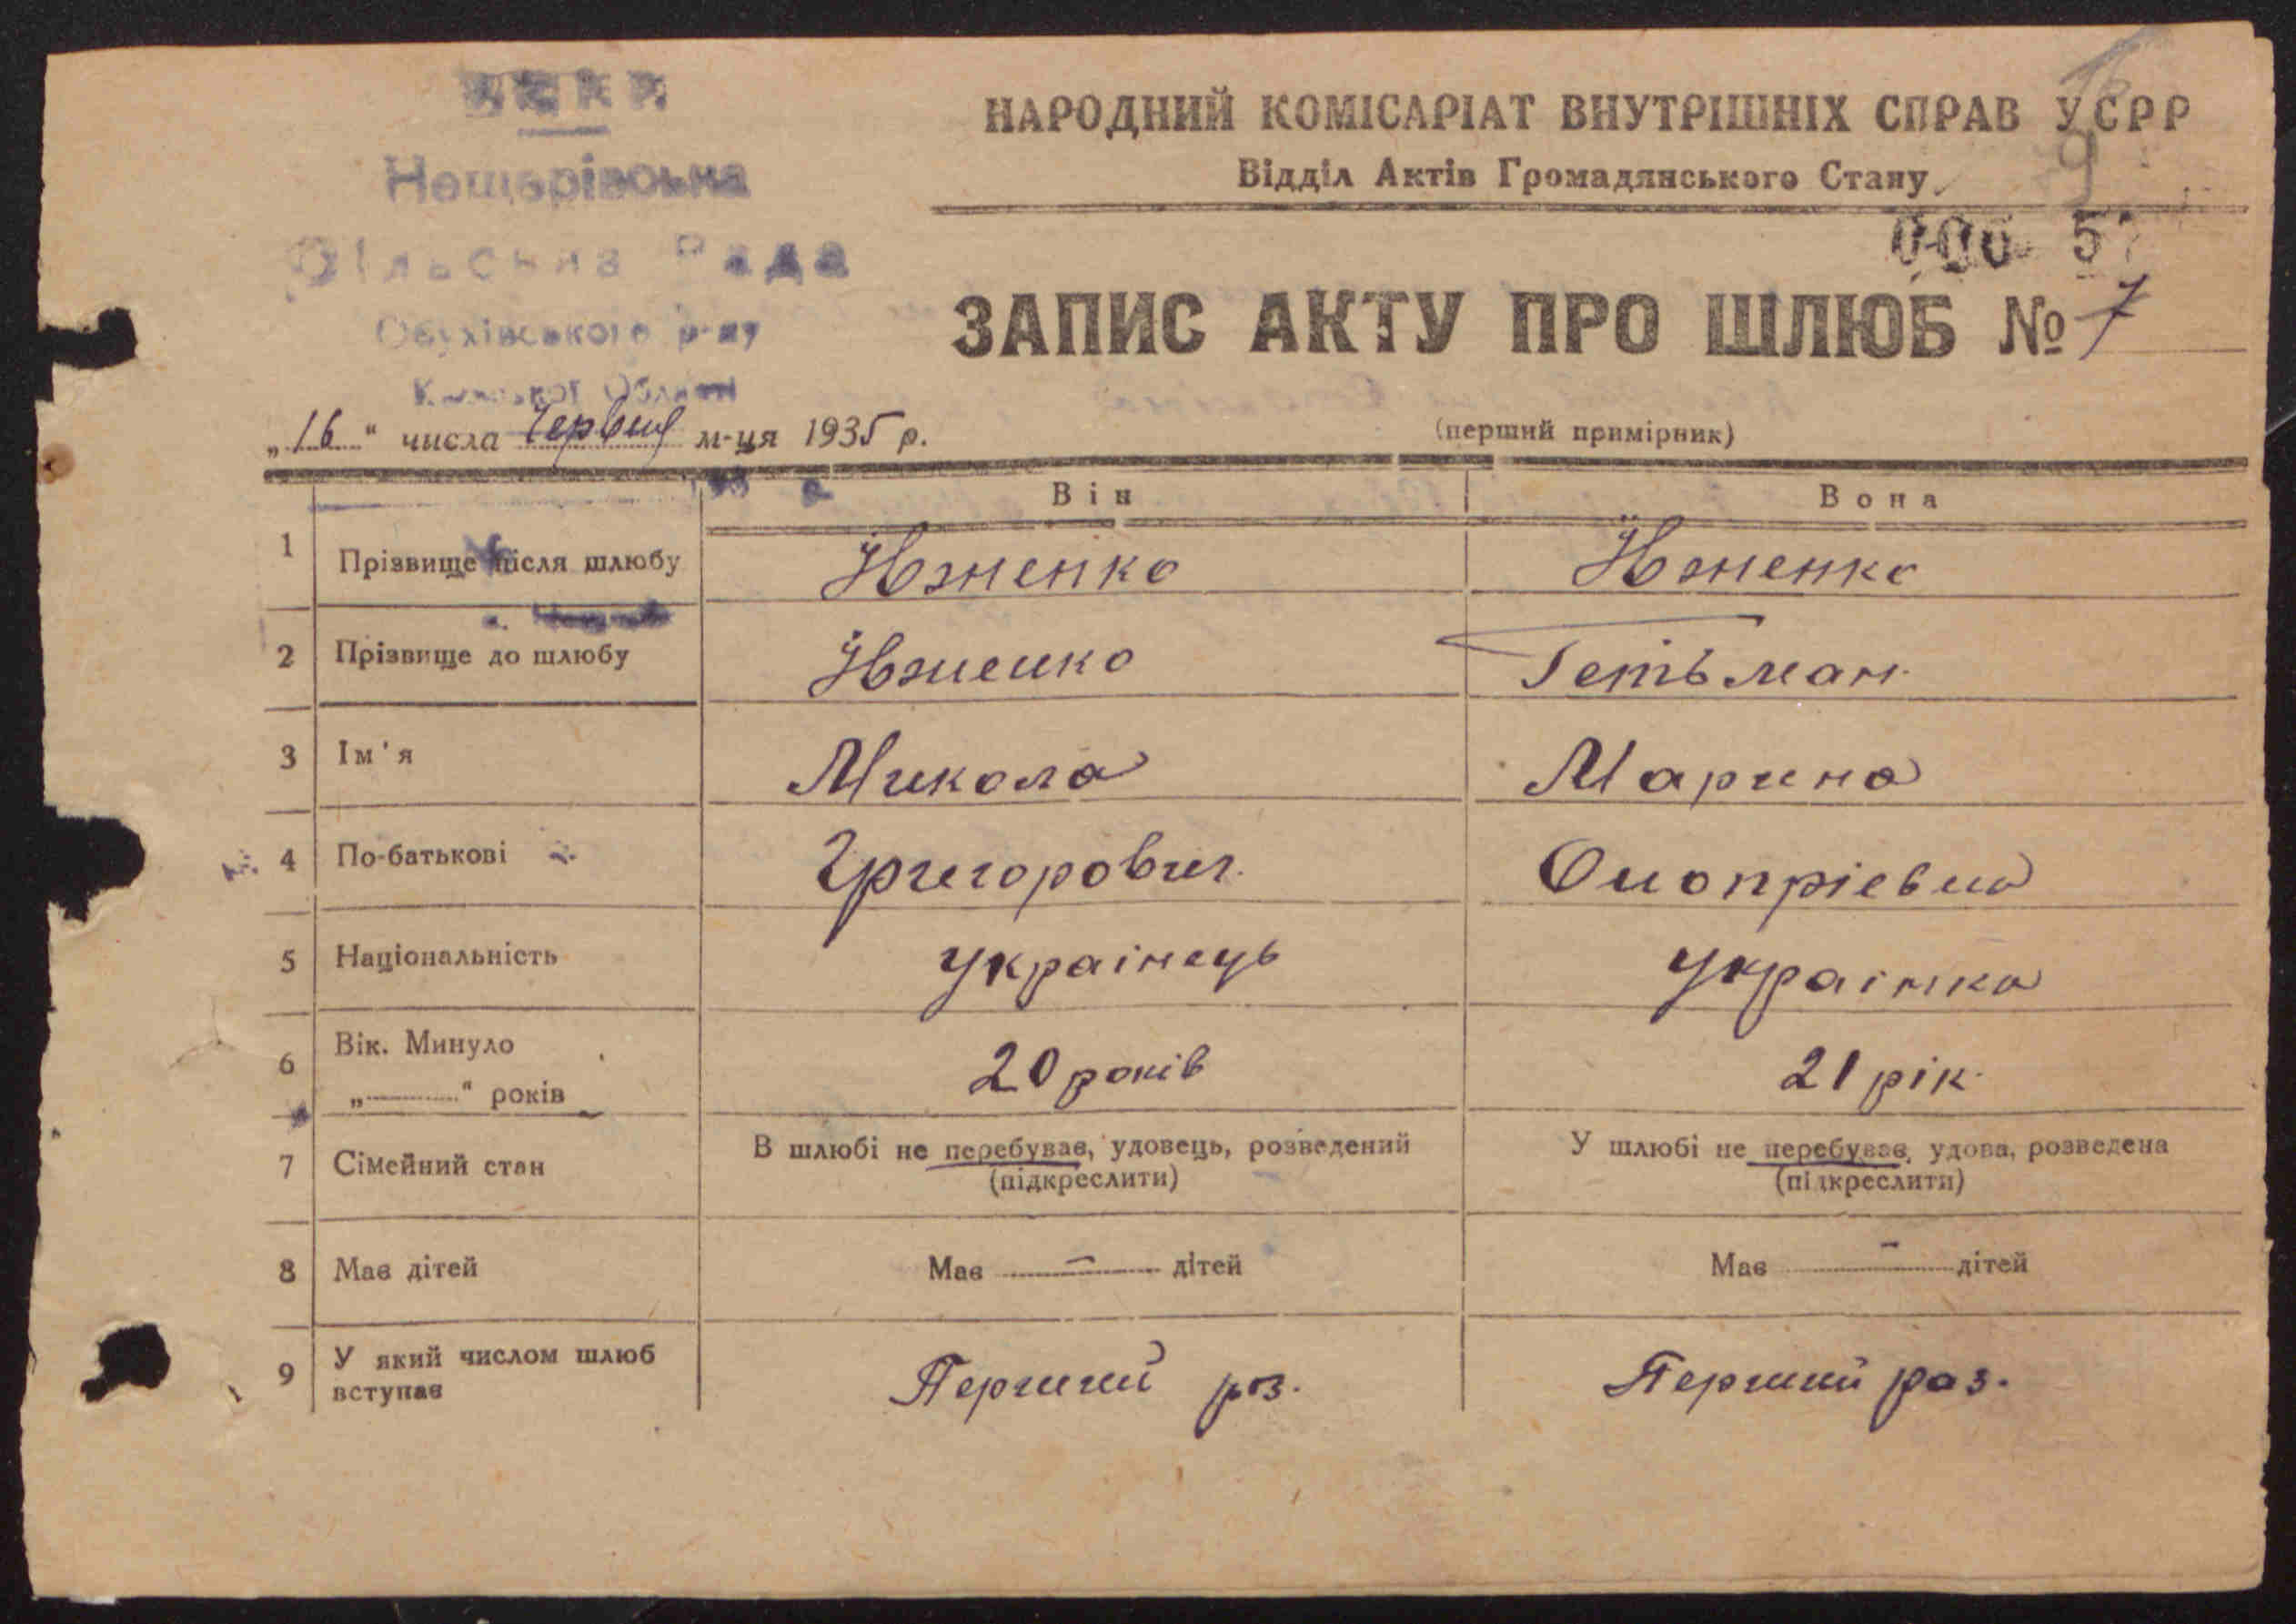 УСРР
Нещерівська
Сільська Рада
Обухівського р-ну
Київської Області
НАРОДНИЙ КОМІСАРІАТ ВНУТРІШНІХ СПРАВ УСРР
Відділ Актів Громадянського Стану
9
000 57
ЗАПИС АКТУ ПРО ШЛЮБ № 7
„16" числа Червня м-ця 1935 р.
(перший примірник)
Він Вона
1 Прізвище після шлюбу Їженко Їженко
2 Прізвище до шлюбу Їженко Гетьман
3 Ім'я Микола Марина
4 По-батькові Григорович Оноприєвна
5 Національність українець українка
6 Вік. Минуло
„ " років 20 років 21 рік
7 Сімейний стан В шлюбі не перебував, удовець, розведений У шлюбі не перебував, удова, розведена
(підкреслити) (підкреслити)
8 Має дітей Має — дітей Має — дітей
9 У який числом шлюб
вступає Перший раз. Перший раз.